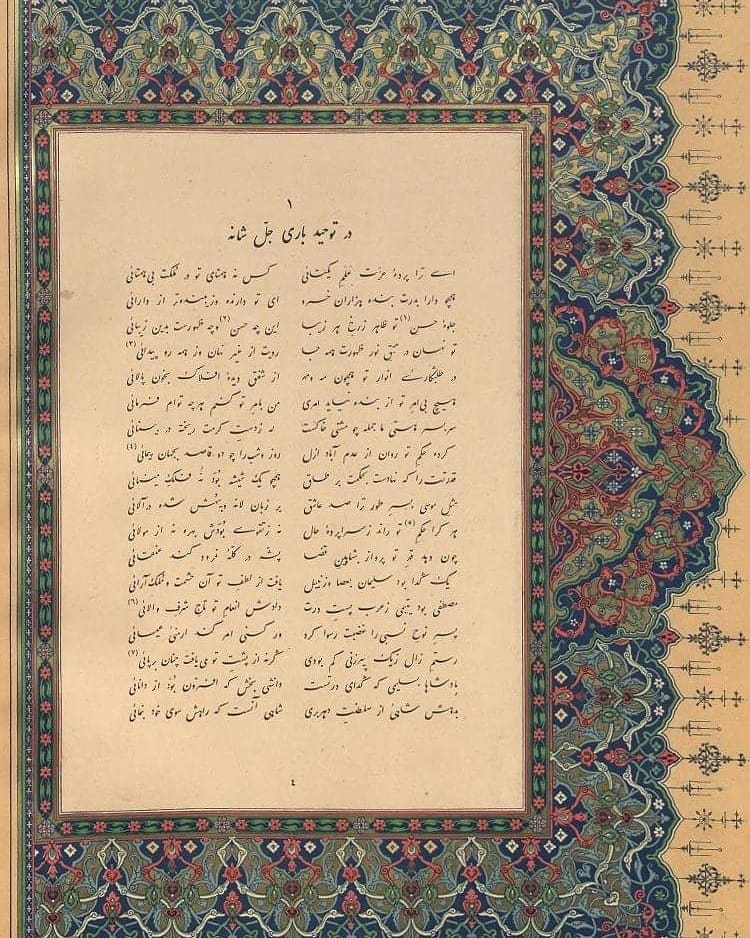 ۱
در توحید باری جلّ شانه
اے ترا پردهٔ عزت علم یکتائی کس نه همتای تو در مملکت بی همتائی
همچو دارا بدرت بنده هزاران خسرو ای تو دارنده و زیبنده‌تر از دارائی
جلوهٔ حسن (۱) تو ظاهر ز رخ هر زیبا این چه حسن (۲) و چه ظهورست بدین زیبائی
تو نهان در تتق نور ظهورت همه جا رویت از غیر نهان وز همه رو پیدائی (۳)
در طلبگارے انوار تو همچون مه و مهر از شفق دیدهٔ افلاک بخون پالائی
هیچ بی امر تو از بنده نیاید امری من بامر تو کنم هر چه توام فرمائی
سربسر هستی ما جمله چو مشتی خاکست که ز دست کرمت ریخته در
کرده حکم تو روان از عدم آباد ازل روز و شب را چو دو قاصد بجهان پیمائی (٤)
قدرتت را که نهادت بحکمت بر طاق همچو یک شیشه بود نه فلک مینائی
مثل موسی بسر طور ترا صد عاشق بر زبان لانه و شده در
هر کرا حکم (۵) تو راند ز سراپردهٔ حال نه ز تقوے بودش بهره نه از مولائی
چون دهد قدر تو پرواز بشاهین قضا پشه در کلهٔ نمرود کند عنقائی
یک گدا بود سلیمان بعصا و زنبیل یافت از لطف تو آن حشمت و ملک آرائی
مصطفی بود یتیمی ز عرب پست درت دادش انعام تو تاج شرف والائی (٦)
پسر نوح نبی را غضبت رسوا کرد ور کنی امر کند ارمنی عیسائی
رستم زال ز یک پیرزنی کم بودی گرنه از پشت توی یافت چنان برنائی (۷)
پادشاها بسلیمی که گدای در تست دانشی بخش که افزون بود از دانائی
بدهش شاهی از سلطنت رهبری شاهی آنست که راهش سوی خود بنمائی
٤